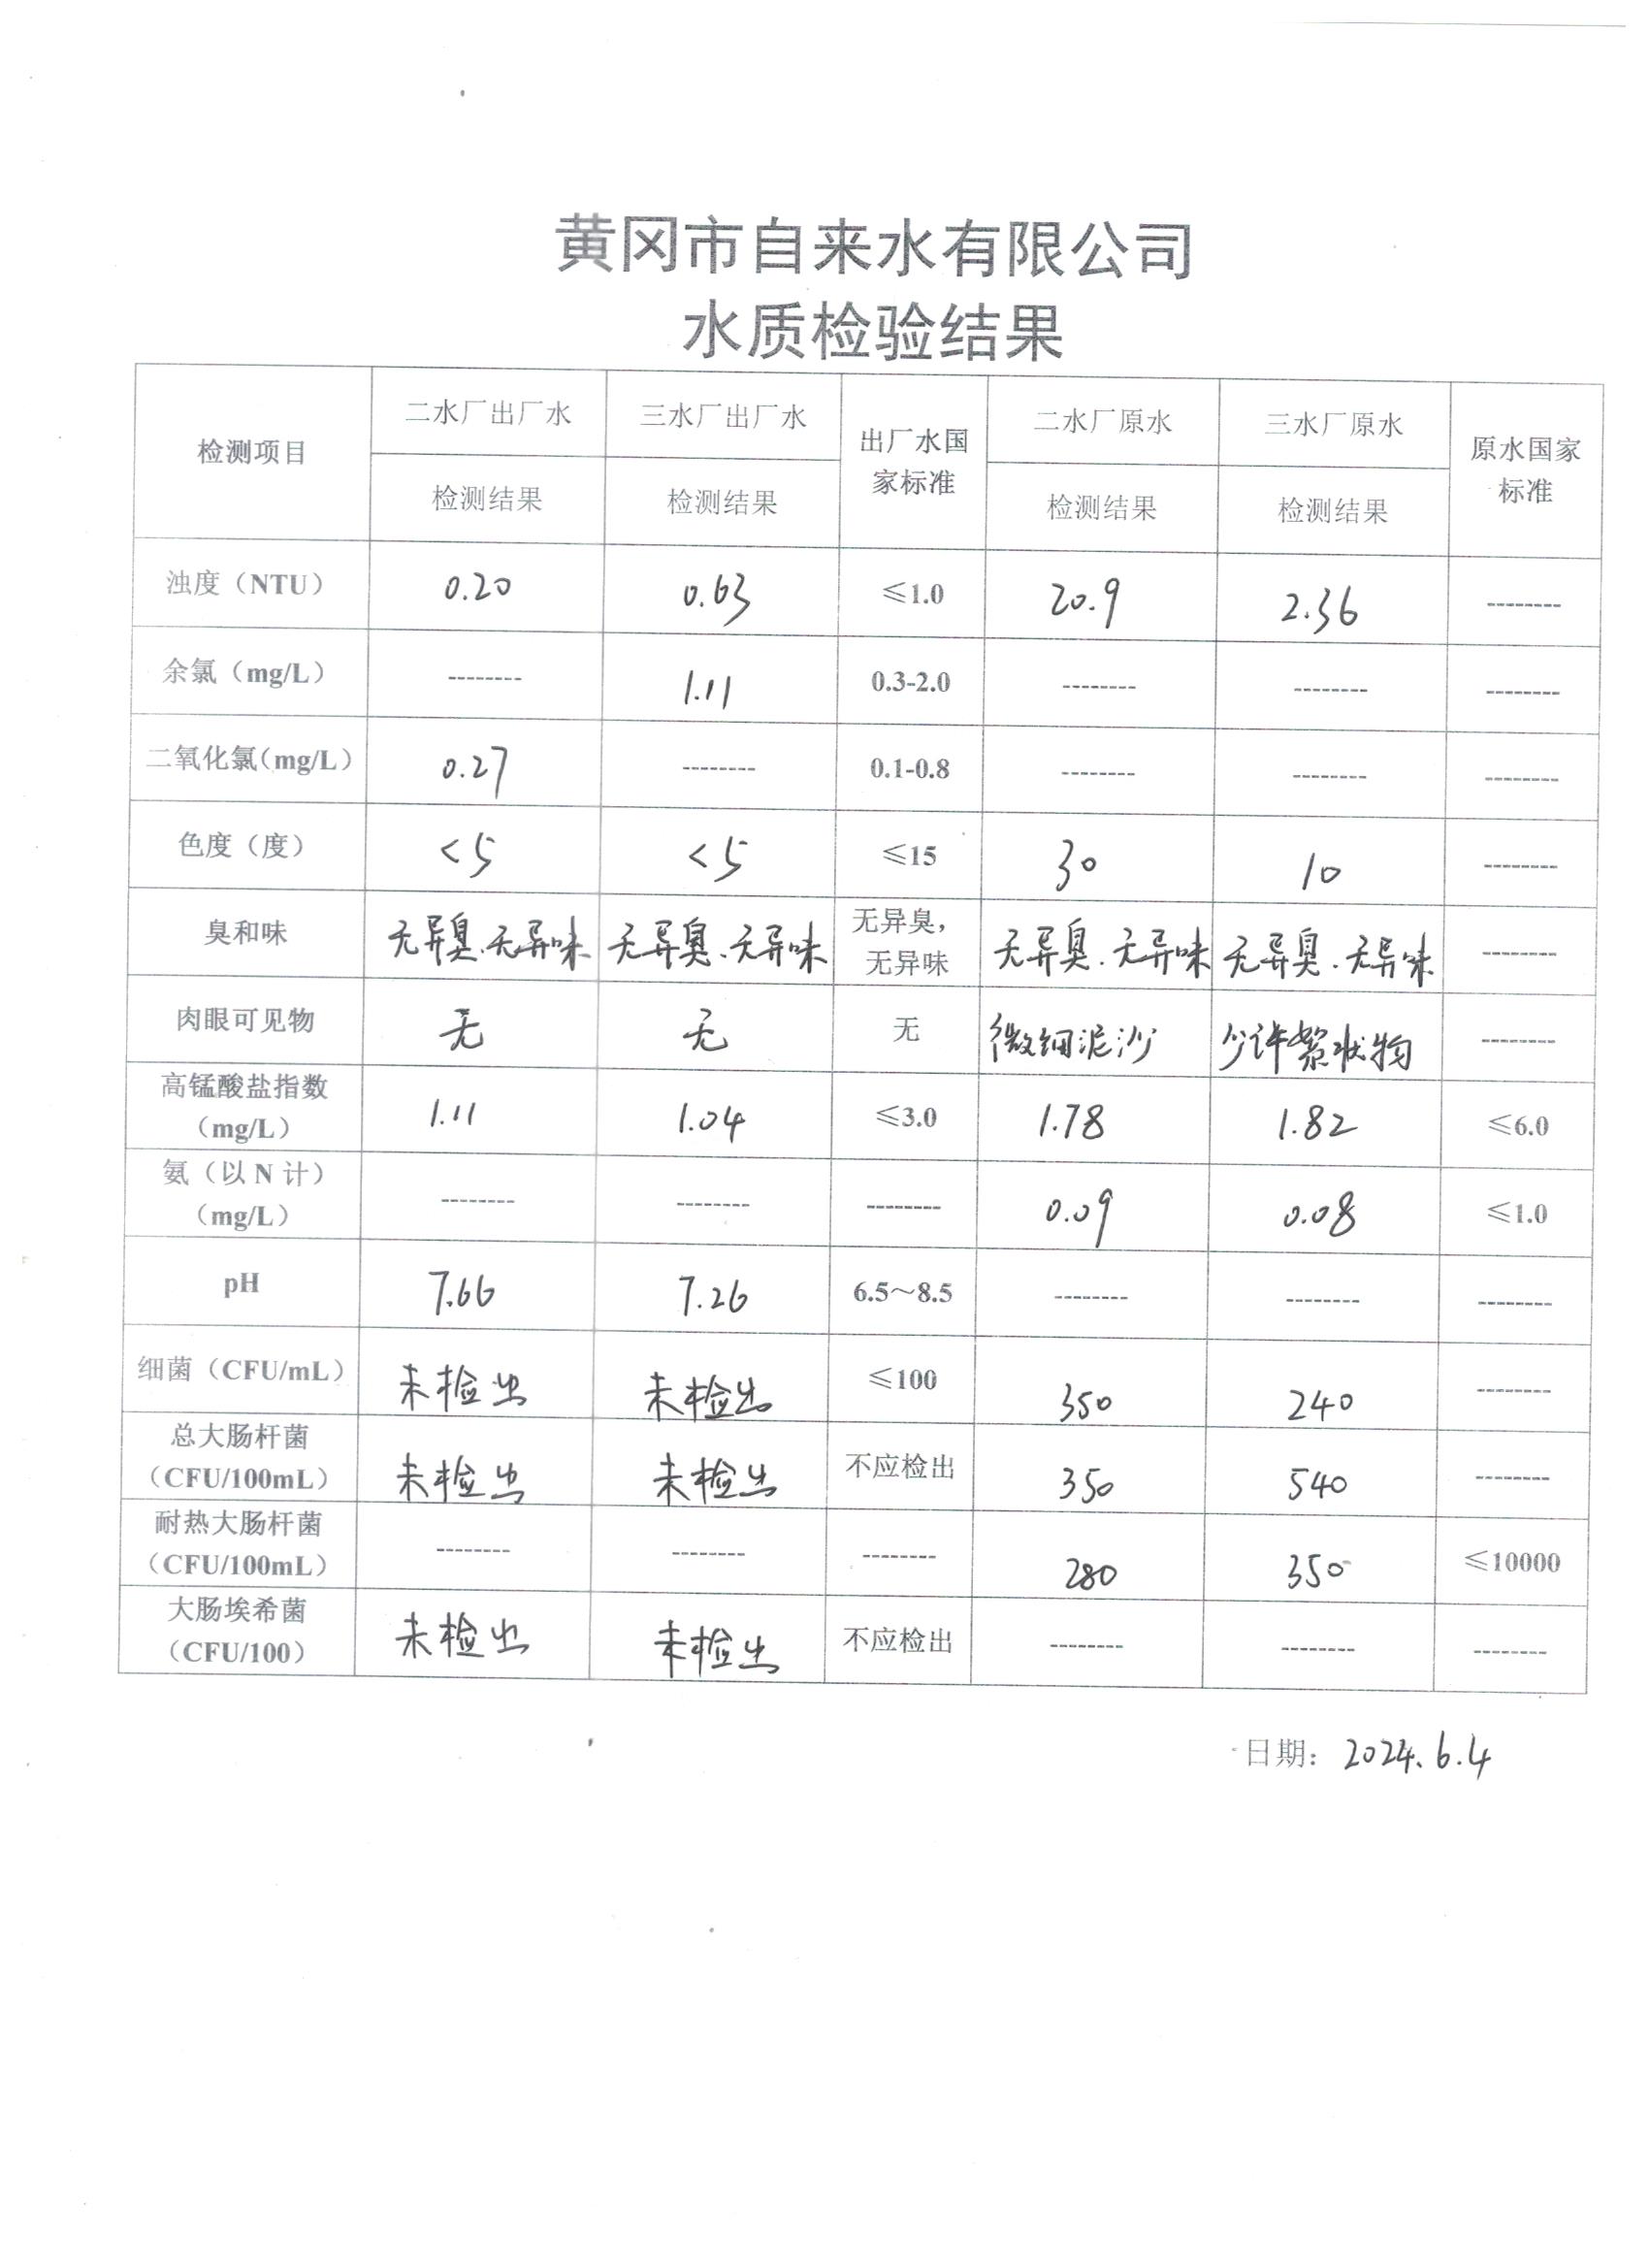 黄冈市自来水有限公司
水质检验结果
检测项目 二水厂出厂水 三水厂出厂水 出厂水国家标准 二水厂原水 三水厂原水 原水国家标准
检测结果 检测结果 检测结果 检测结果
浊度（NTU） 0.20 0.63 ≤1.0 20.9 2.36 --------
余氯（mg/L） -------- 1.11 0.3-2.0 -------- -------- --------
二氧化氯（mg/L） 0.27 -------- 0.1-0.8 -------- -------- --------
色度（度） <5 <5 ≤15 30 10 --------
臭和味 无异臭.无异味 无异臭.无异味 无异臭，无异味 无异臭.无异味 无异臭.无异味 --------
肉眼可见物 无 无 无 微细泥沙 少许絮状物 --------
高锰酸盐指数（mg/L） 1.11 1.04 ≤3.0 1.78 1.82 ≤6.0
氨（以 N 计）（mg/L） -------- -------- -------- 0.09 0.08 ≤1.0
pH 7.66 7.26 6.5～8.5 -------- -------- --------
细菌（CFU/mL） 未检出 未检出 ≤100 350 240 --------
总大肠杆菌（CFU/100mL） 未检出 未检出 不应检出 350 540 --------
耐热大肠杆菌（CFU/100mL） -------- -------- -------- 280 350 ≤10000
大肠埃希菌（CFU/100） 未检出 未检出 不应检出 -------- -------- --------
日期：2024.6.4